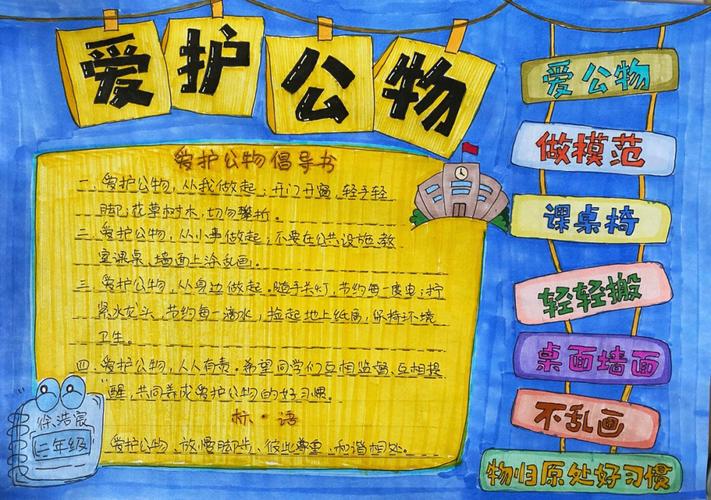 爱护公物
爱护公物倡导书
一、爱护公物，从我做起：开门开窗，轻手轻
脚；花草树木，切勿攀折。
二、爱护公物，从小事做起：不要在公共设施、教
室课桌、墙面上涂乱画。
三、爱护公物，从身边做起。随手关灯，节约每一度电；拧
紧水龙头，节约每一滴水，捡起地上纸屑，保持环境
卫生。
四、爱护公物，人人有责。希望同学们互相监督、互相提
醒，共同养成爱护公物的好习惯。
标·语
爱护公物、放慢脚步、彼此尊重、和谐相处。
爱公物
做模范
课桌椅
轻轻搬
桌面墙面
不乱画
物归原处好习惯
徐浩宸
二年级